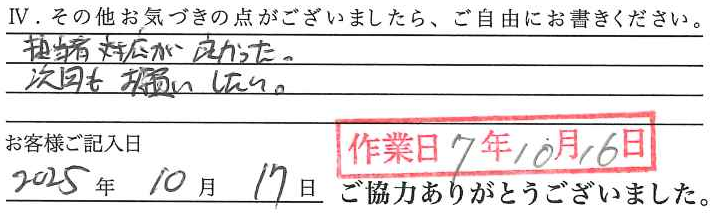 Ⅳ．その他お気づきの点がございましたら、ご自由にお書きください。
担当者対応が良かった。
次回もお願いしたい。
お客様ご記入日
作業日7年10月16日
2025年10月17日
ご協力ありがとうございました。